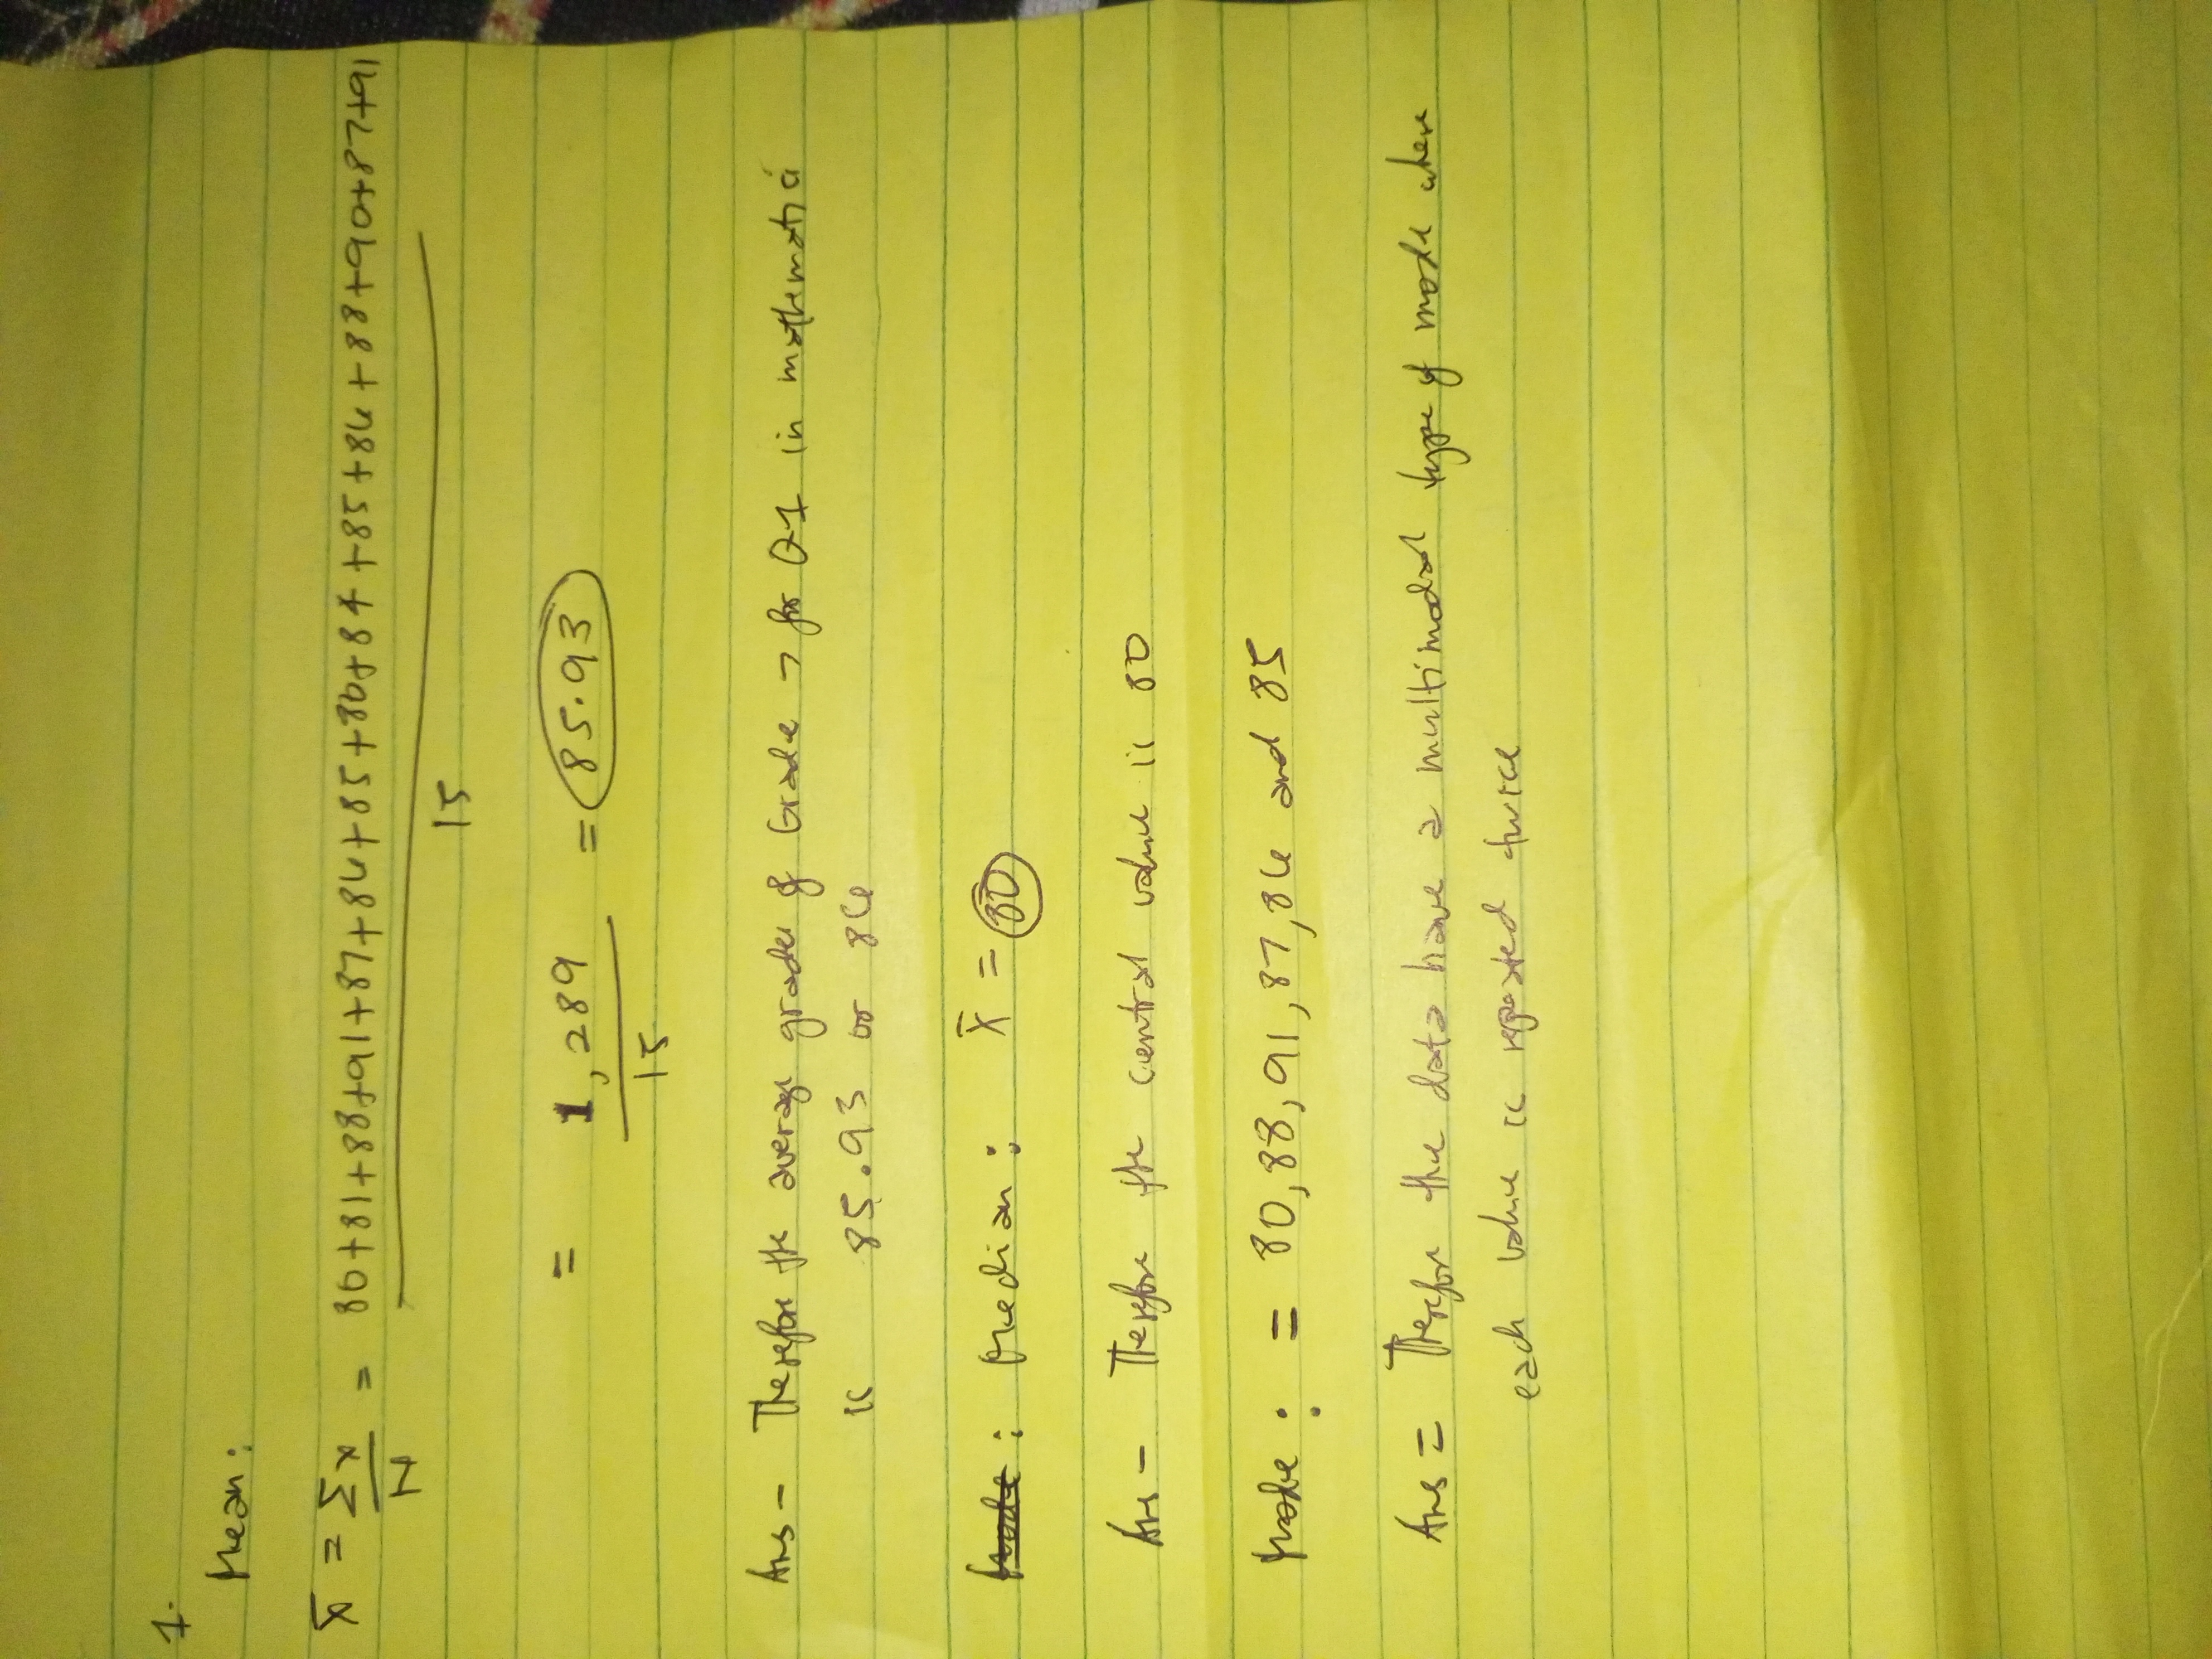 1.
Mean:
x̄ = Σx = 80+81+88+91+87+86+85+80+84+85+86+88+90+87+91
N 15
= 1,289 = 85.93
15
Ans - Therefore the average grades of Grade 7 for Q1 in mathematics
is 85.93 or 86
: Median: x̄ = 80
Ans - Therefore the central value is 80
Mode: = 80, 88, 91, 87, 86 and 85
Ans = Therefore the data have a multimodal type of mode where
each value is repeated twice